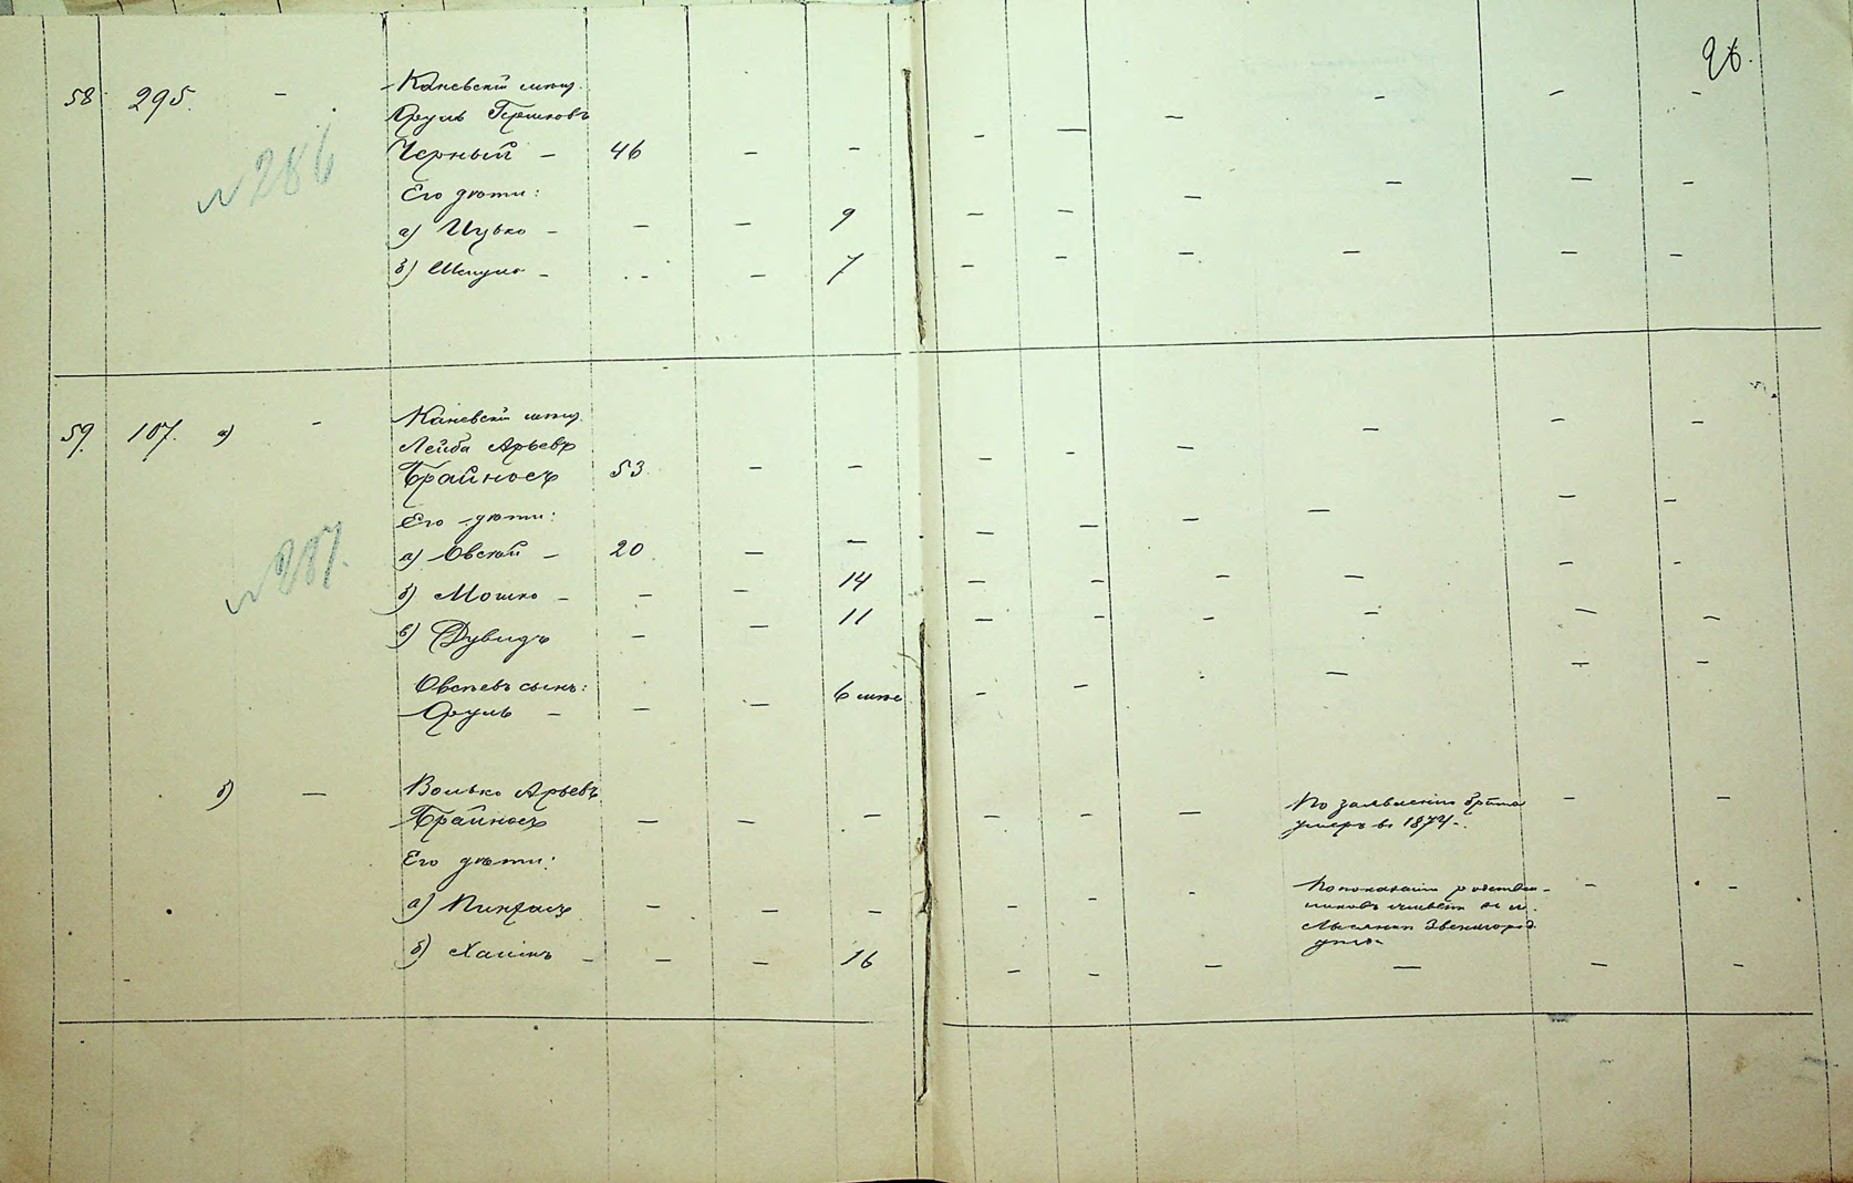 26.
58 295. – Каневскій мѣщ.
Сруль Гершковъ
Черный – 46 – –
Его дѣти:
а) Ицько – – – 9
б) Шмуль – – – 7
№ 286
59. 107. а) – Каневскій мѣщ.
Лейба Арьевъ
Брайносъ 53 – –
Его дѣти:
а) Овсѣй – 20 – –
б) Мошко – – – 14
в) Дувидъ – – 11
№ 287.
Овсѣевъ сынъ:
Сруль – – – 6 мѣс
б) – Волько Арьевъ
Брайносъ – – – – – – По заявленію брата – –
умеръ въ 1874.
Его дѣти:
а) Пинхасъ – – – – – – По показанію родствен- – –
никовъ живетъ въ м.
Лысянки Звенигород.
уѣзда
б) Хаимъ – – – 16 – – – – – –